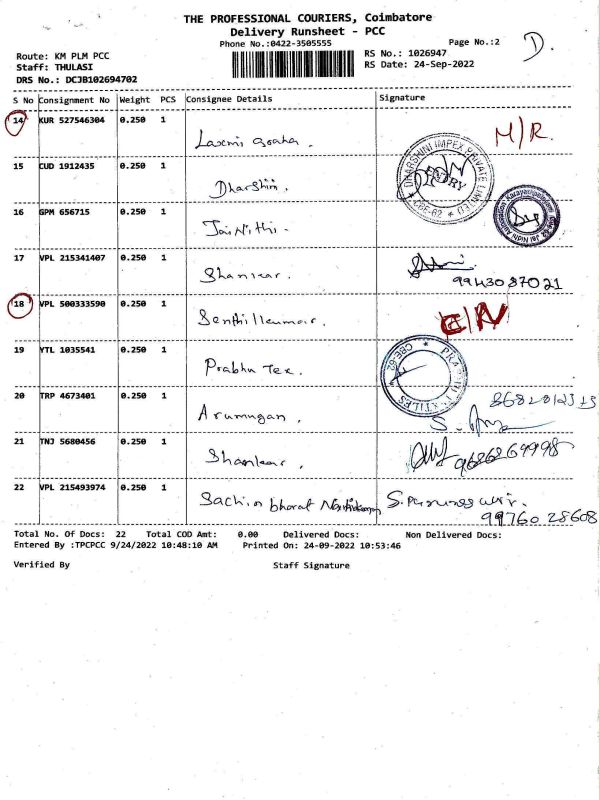 THE PROFESSIONAL COURIERS, Coimbatore
Delivery Runsheet - PCC
Phone No.:0422-3505555
Page No.:2
D.
Route: KM PLM PCC
RS No.: 1026947
Staff: THULASI
RS Date: 24-Sep-2022
DRS No.: DCJB102694702
S No Consignment No Weight PCS Consignee Details Signature
14 KUR 527546304 0.250 1 Laxmi M/R.
15 CUD 1912435 0.250 1 Dharshini. DHARSHINI IMPEX PRIVATE LIMITED ENTRY CBE-62
16 GPM 656715 0.250 1 Jai Nithi.
17 VPL 215341407 0.250 1 Shankar. 9943087021
18 VPL 500333590 0.250 1 Senthilkumar.
19 YTL 1035541 0.250 1 Prabhu Tex. CBE-62
20 TRP 4673401 0.250 1 Arumugan.
21 TNJ 5680456 0.250 1 Shankar. 9686869998
22 VPL 215493974 0.250 1 Sachin bharat 9976028608
Total No. Of Docs: 22 Total COD Amt: 0.00 Delivered Docs: Non Delivered Docs:
Entered By :TPCPCC 9/24/2022 10:48:10 AM Printed On: 24-09-2022 10:53:46
Verified By Staff Signature